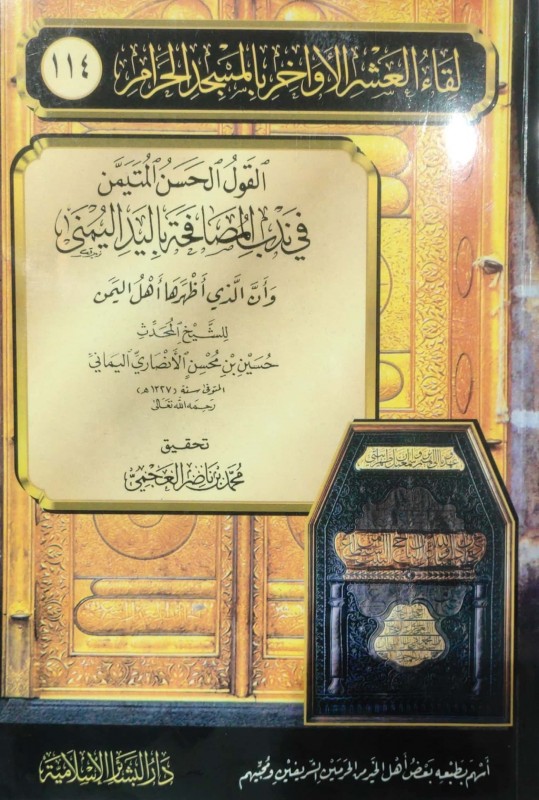 لِقَاءُ العَشْرِ الأَوَاخِرِ بِالمَسْجِدِ الحَرَامِ
١١٤
القَوْلُ الحَسَنُ المُتَيَمَّن
فِي نَدْبِ المُصَافَحَةِ بِاليَدِ اليُمْنَى
وَأَنَّ الَّذِي أَظْهَرَهَا أَهْلُ اليَمَن
لِلشَّيْخِ المُحَدِّثِ
حُسَيْنِ بْنِ مُحْسِنٍ الأَنْصَارِيِّ اليَمَانِي
المتوفى سنة (١٣٢٧ هـ)
رَحِمَهُ اللهُ تَعَالَى
تحقيق
مُحَمَّد بْن نَاصِر العَجْمِيّ
أَسْهَمَ بِطَبْعِهِ بَعْضُ أَهْلِ الخَيْرِ مِنَ الحَرَمَيْنِ الشَّرِيفَيْنِ وَمُحِبِّيهِم
دَارُ البَشَائِرِ الإِسْلَامِيَّة